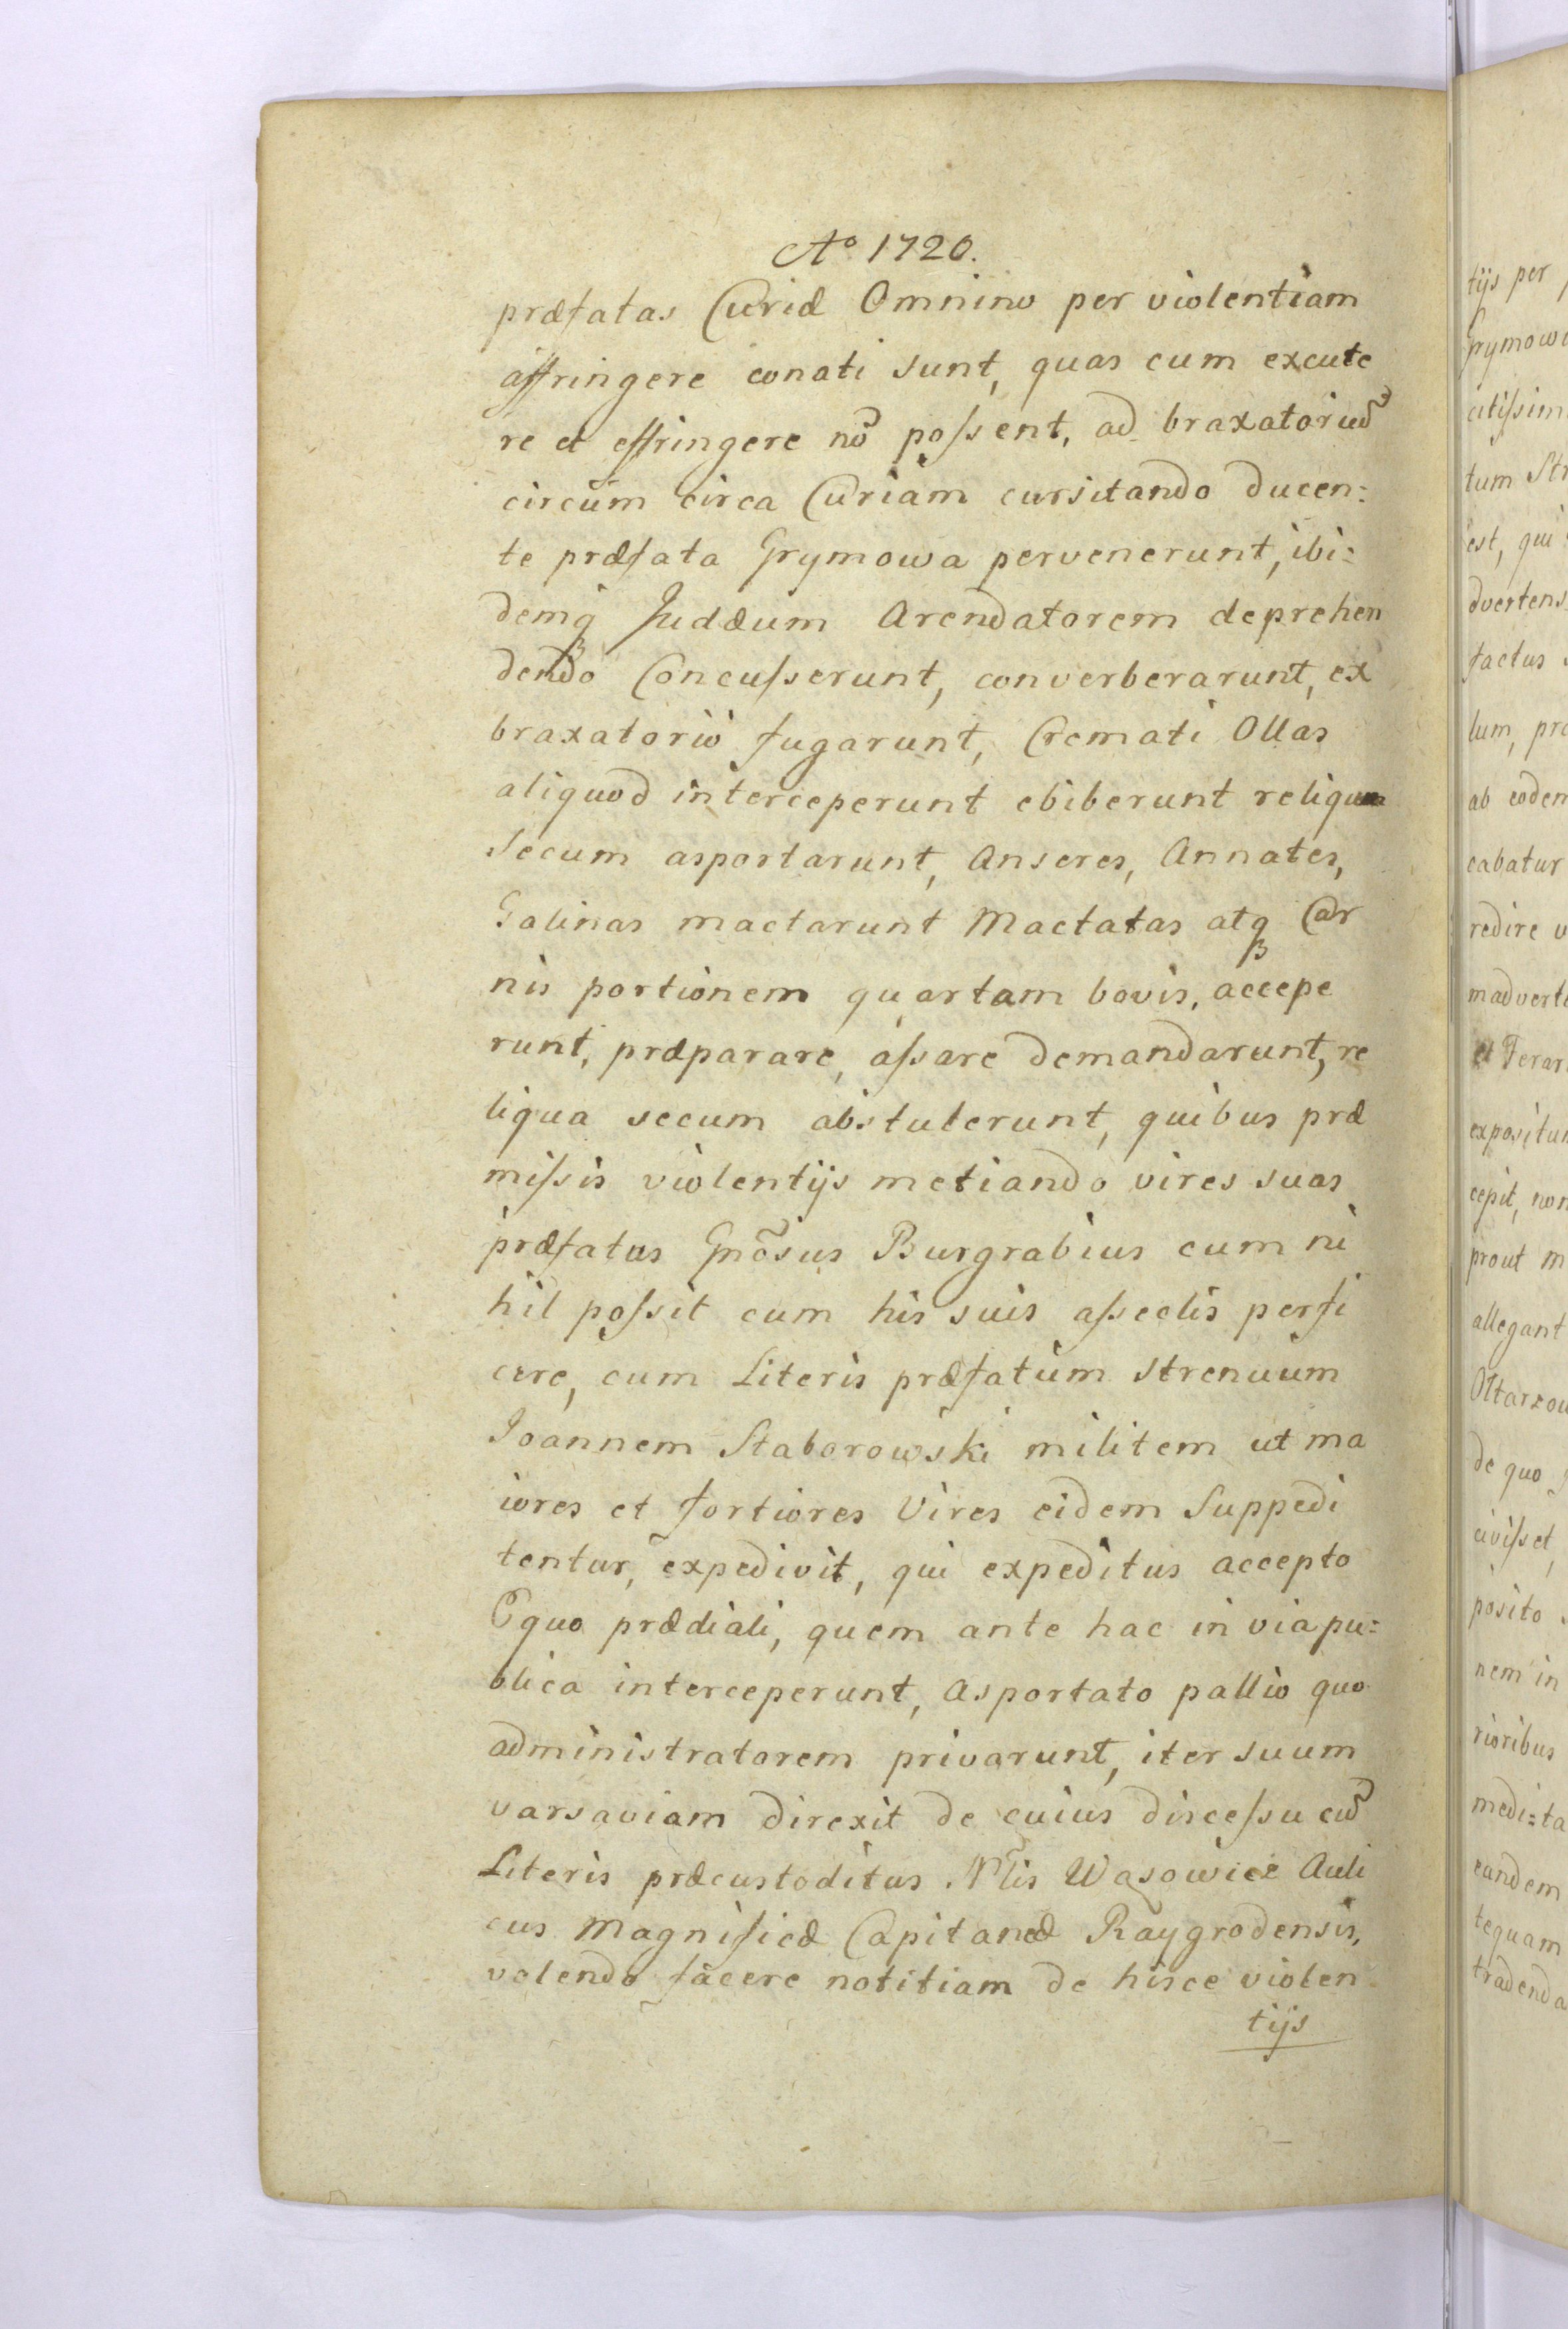 Aº 1720.
præfatas Curiæ Omnino per violentiam
affringere conati sunt, quas cum excute
re et effringere nõ poſsent, ad braxatoriũ
circum circa Curiam cursitando ducen=
te præfata Grymowa pervenerunt, ibi=
demqꝫ Judæum Arendatorem deprehen
dendo Concuſserunt, converberarunt, ex
braxatorio fugarunt, Cremati Ollas
aliquod interceperunt ebiberunt reliqua
Secum asportarunt, Anseres, Annates,
Galinas mactarunt Mactatas atqꝫ Car
nis portionem quartam bovis, accepe
runt, præparare, aſsare demandarunt, re
liqua secum abstulerunt, quibus præ
miſsis violentijs metiando vires suas
præfatus Gnõsus Burgrabius cum ni
hil poſsit cum his suis aſseclis perfi
cere, cum Literis præfatum strenuum
Joannem Staborowski militem ut ma
iores et fortiores Vires eidem Suppedi
tentur, expedivit, qui expeditus accepto
Equo prædiali, quem ante hac in via pu=
blica interceperunt, Asportato pallio quo
administratorem privarunt, iter suum
varsaviam direxit de cuius disceſsu cũ
Literis præcustoditus Nlĩs Wąsowicz Auli
cus Magnificæ Capitaneæ Raygrodensis,
volendo facere notitiam de hisce violen
tijs
tijs per
Grymow
citiſsim
tum Str
est, qui
dvertens
factus
lum, pro
ab eodem
cabatur
redire
madverte
et Ferar
expositum
cepit, non
prout m
allegant
Oltarzow
de quo
civiſset,
posito
nem in
rioribus
medi=ta
eundem
tequam
tradenda